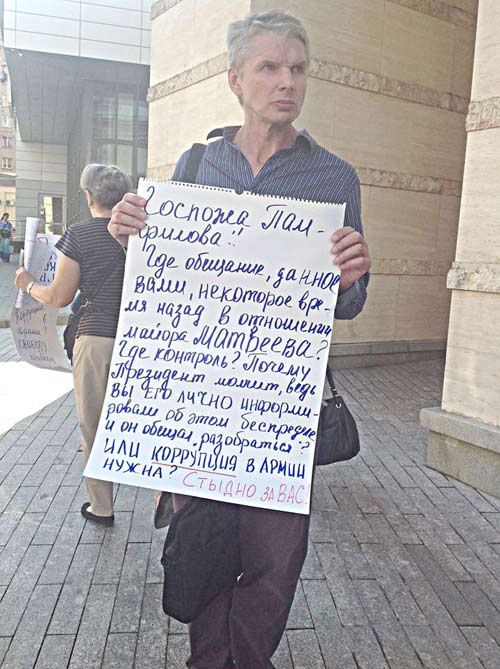 Госпожа Пам-
филова!!
Где обещание, данное
вами, некоторое вре-
мя назад в отношении
майора МАТВЕЕВА?
Где контроль? Почему
Президент молчит, ведь
вы его лично информи-
ровали об этом беспределе
и он обещал разобраться??
ИЛИ КОРРУПЦИЯ В АРМИИ
НУЖНА? СТЫДНО ЗА ВАС.